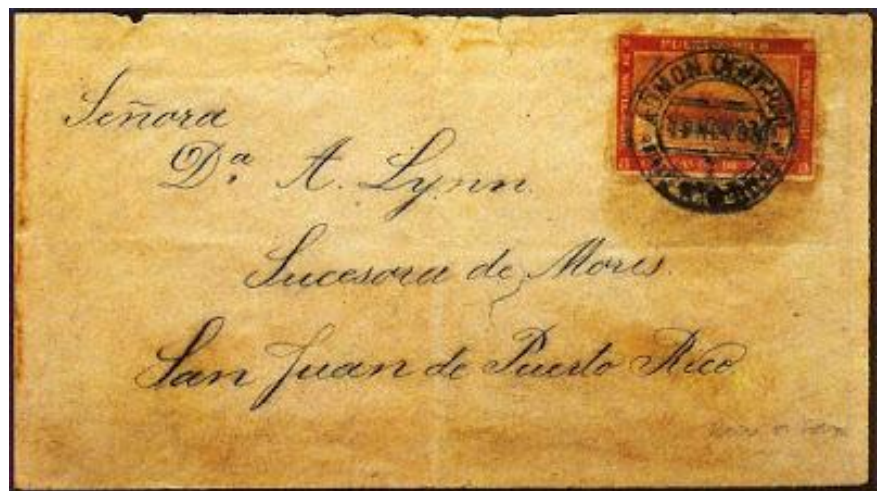 PUERTO RICO
Señora
Dª A. Lynn
Sucesora de Mores.
San Juan de Puerto Rico